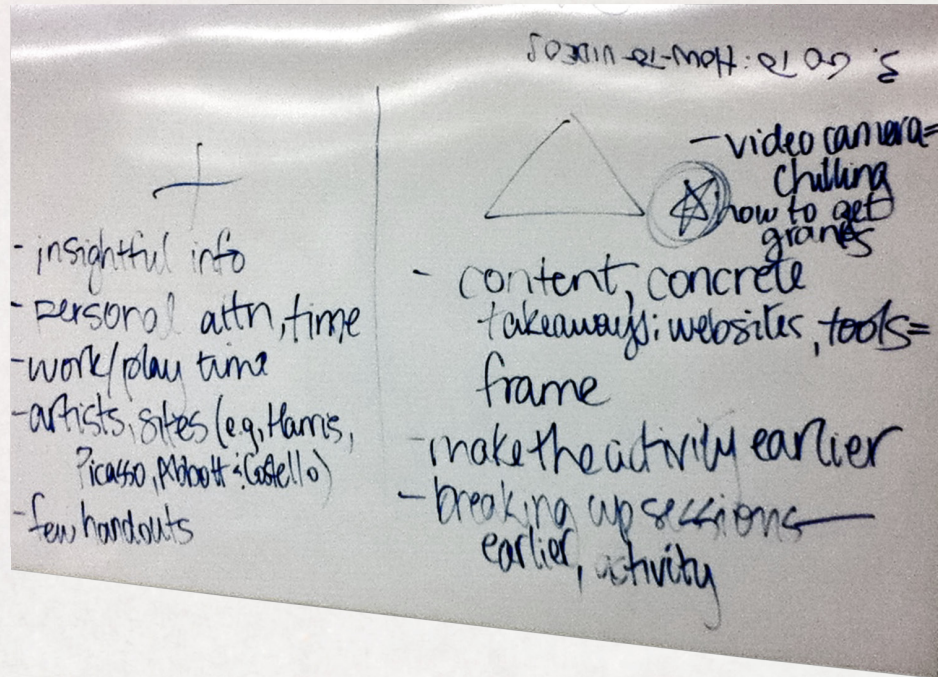 3. GO TO: HOW-TO VIDEOS
+
- insightful info
- personal attn, time
- work/play time
- artists, sites (e.g., Harris,
Picasso, Abbott & Costello)
- few handouts
- video camera=
chilling
how to get
grants
- content, concrete
takeaways: websites, tools=
frame
- make the activity earlier
- breaking up sessions—
earlier, activity